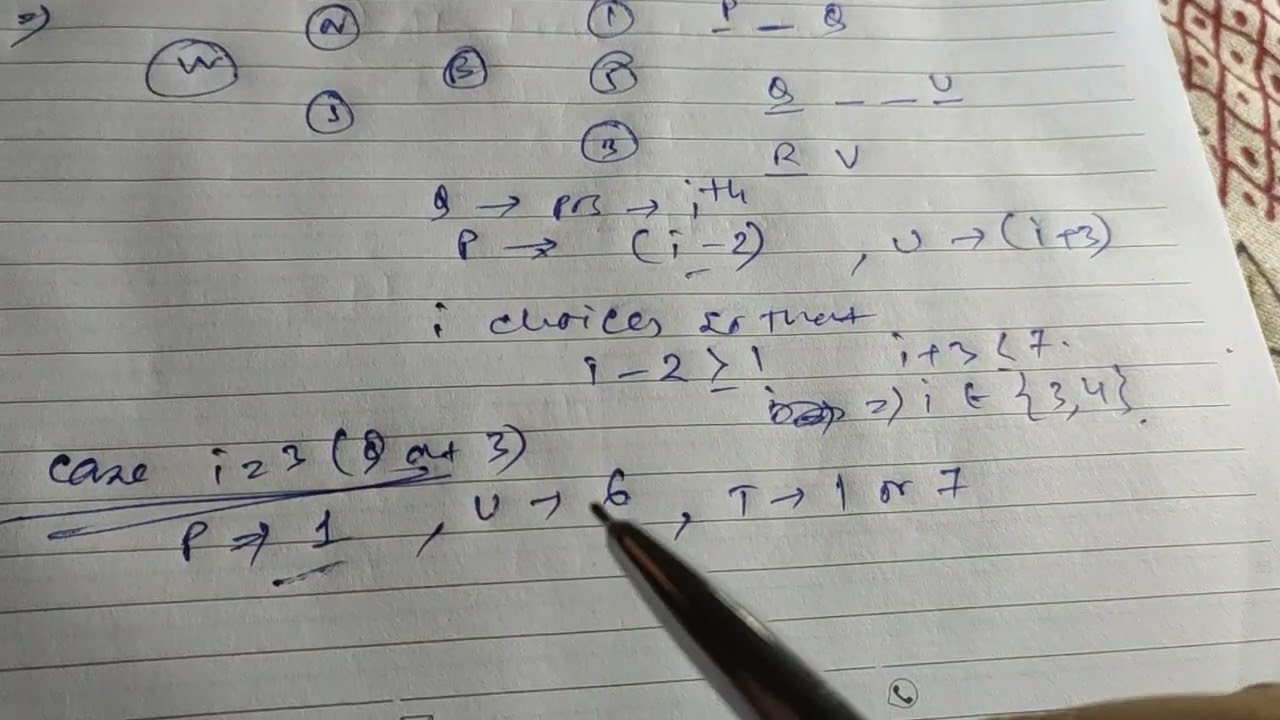 =) 2 1 P _ Q
W B 5 Q _ _ U
3 3 R V
Q → pos → i+4
P → (i-2) , U → (i+3)
i choices so that
i - 2 ≥ 1 i+3 ≤ 7.
=) i ∈ {3,4}.
case i = 3 (Q at 3)
P → 1 , U → 6 , T → 1 or 7